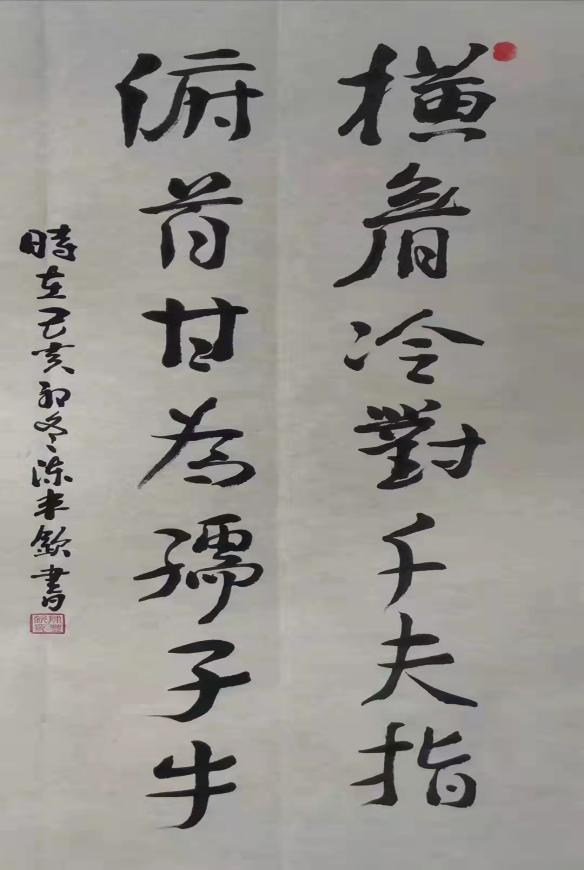 横眉冷對千夫指
俯首甘為孺子牛
時在己亥初冬陳欽書